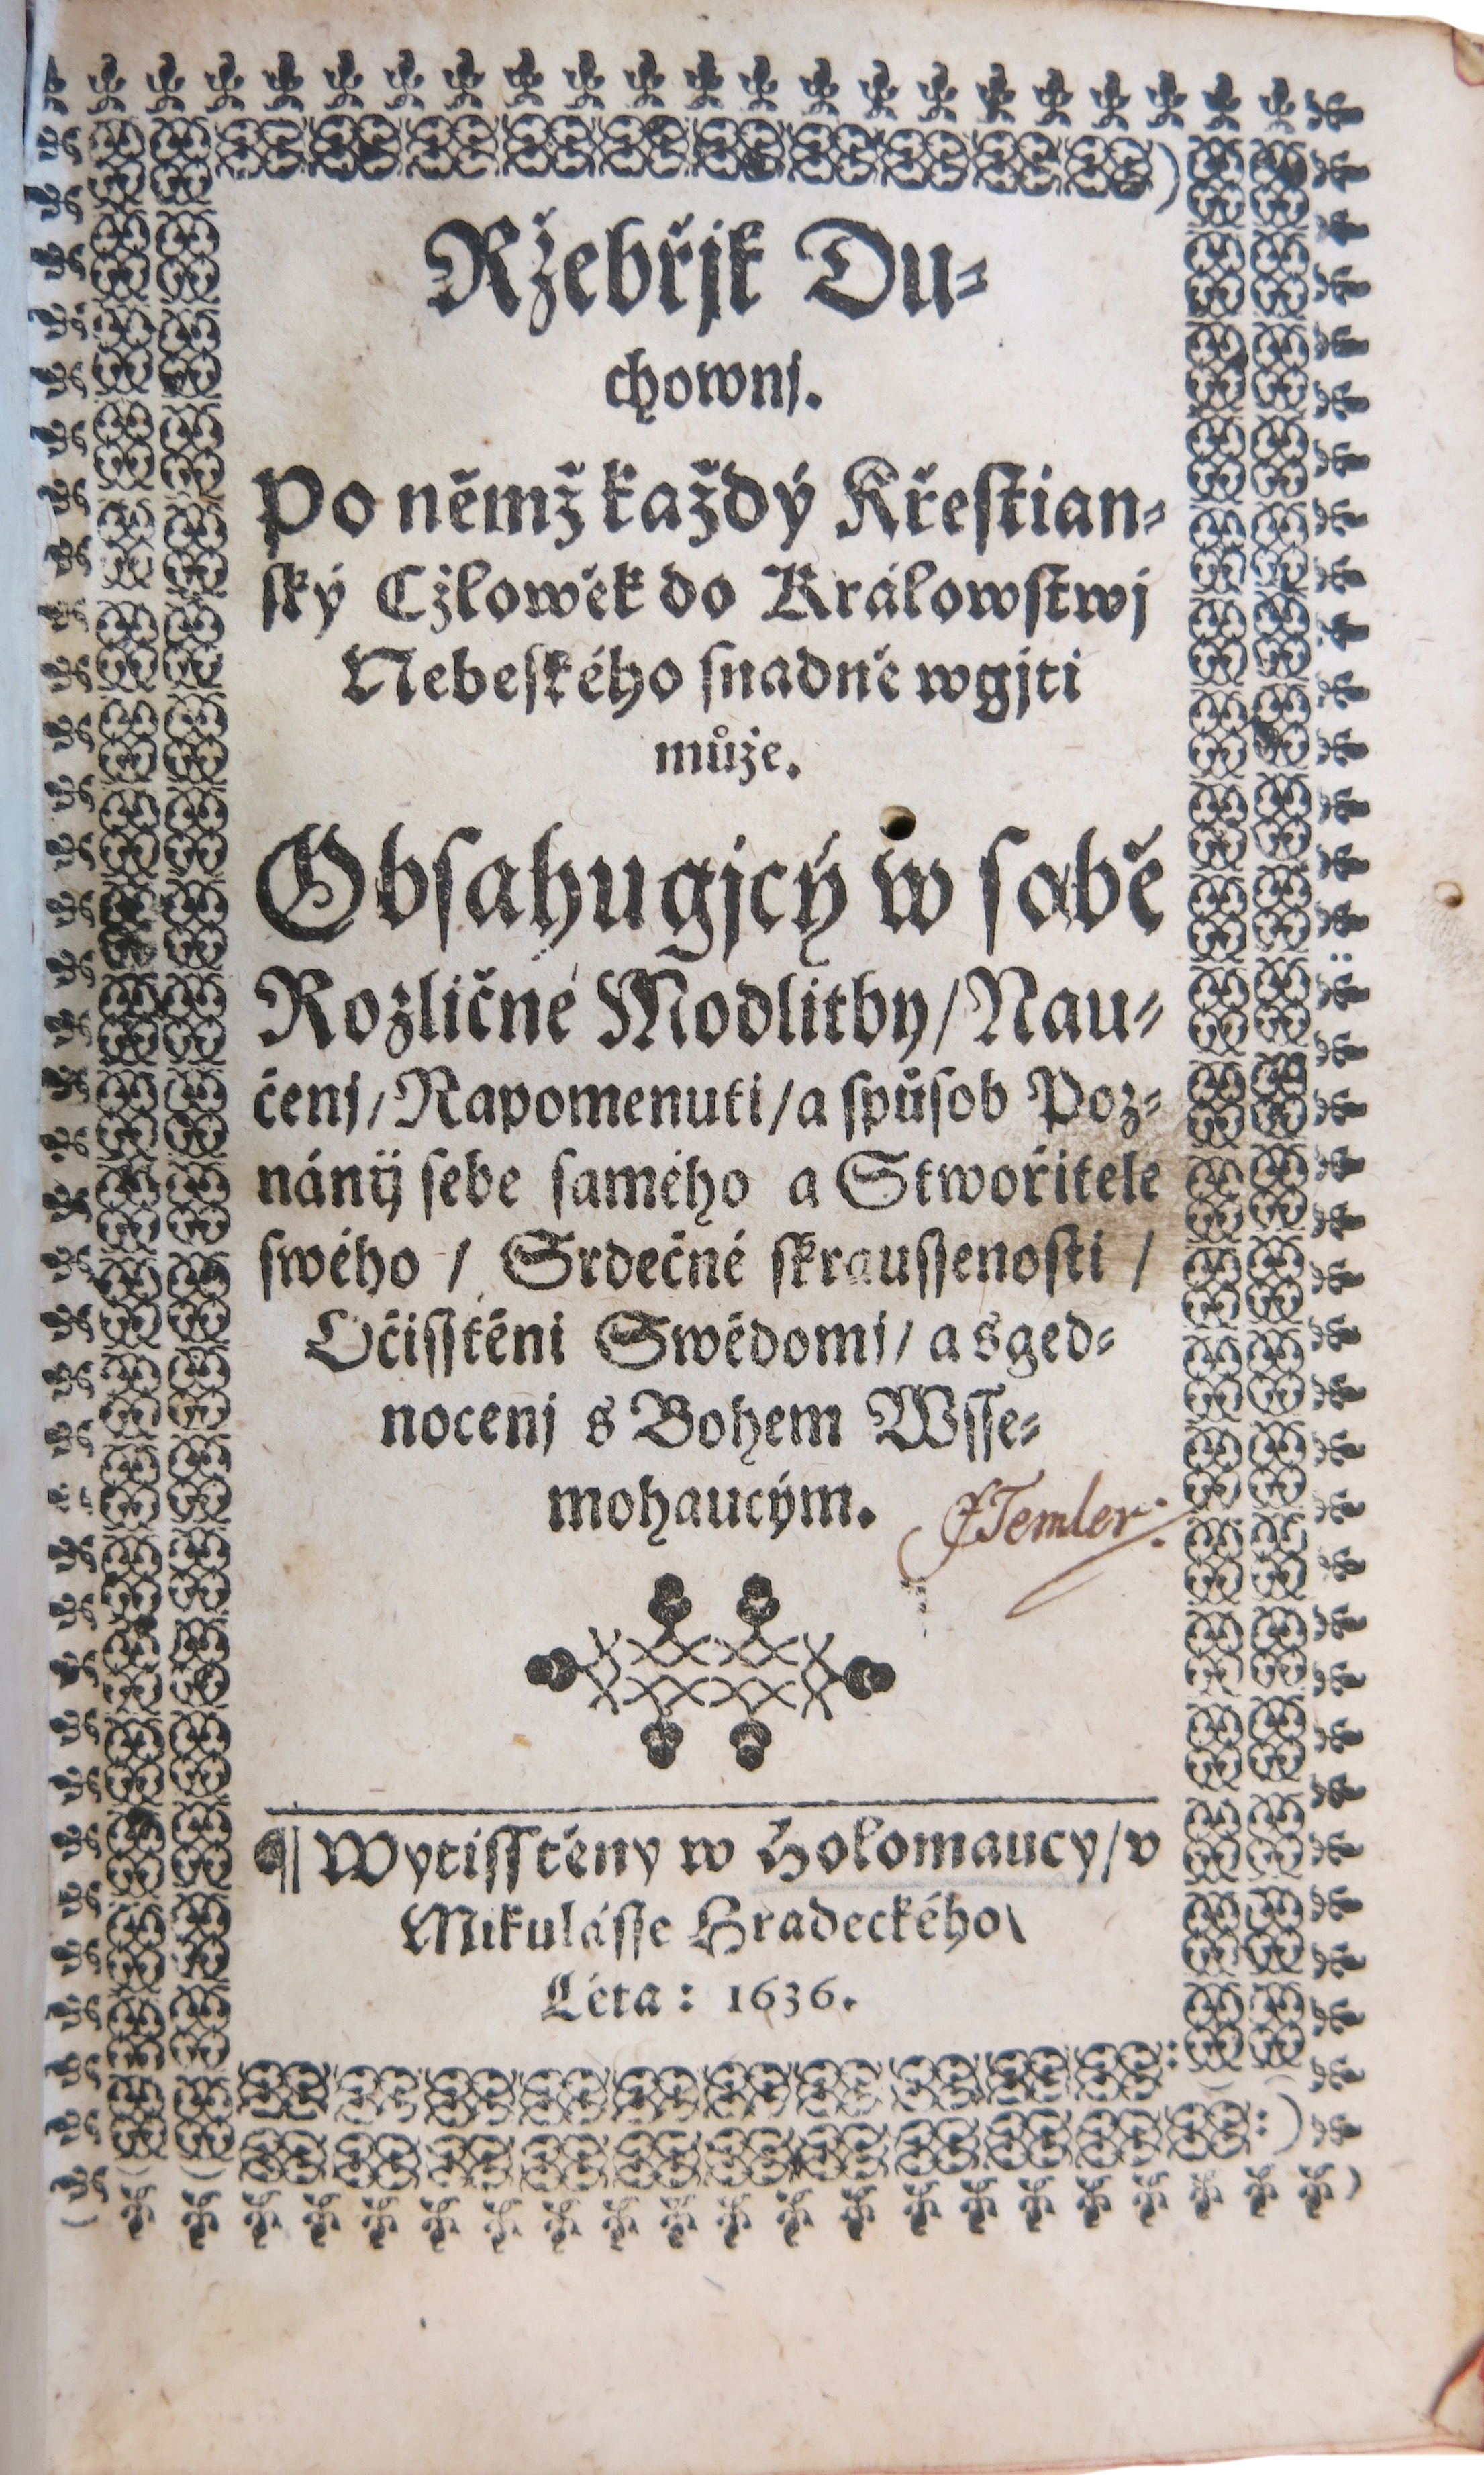 Ržebřjk Du⸗
chownj.
Po němž každý Křeſtian⸗
ſký Cžlowěk do Králowſtwj
Nebeſkého ſnadně wgjti
může.
Obſahugjcý w ſobě
Rozličné Modlitby/ Nau⸗
čenj/ Napomenuti/ a ſpůſob Poz⸗
nánij ſebe ſamého a Stwořitele
ſwého / Srdečné ſkrauſſenoſti /
Očiſſtěni Swědomj/ a sged⸗
nocenj s Bohem Wſſe⸗
mohaucým.
JTemler:
¶ Wytiſſtěny w Holomaucy/ v
Mikuláſſe Hradeckého\
Léta: 1636.